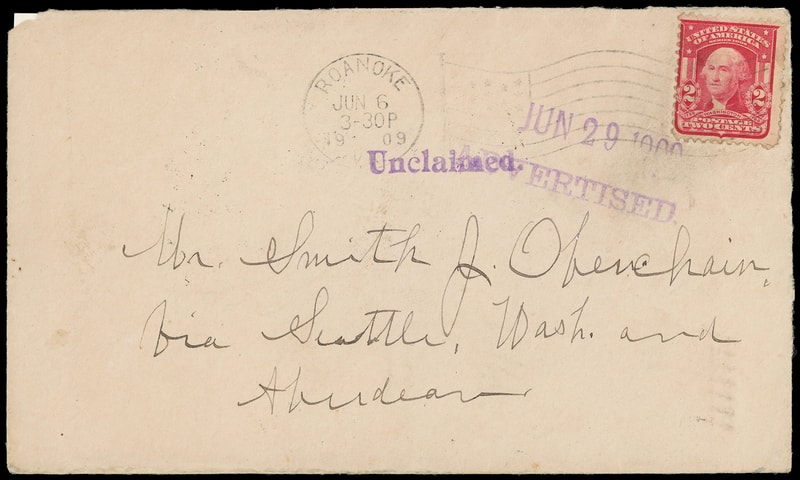 ROANOKE
JUN 6
3-30P
19 09
UNITED STATES
OF AMERICA
2 2
WASHINGTON
POSTAGE
TWO CENTS
JUN 29 1909
ADVERTISED.
Unclaimed.
Mr. Smith J. Obenchain,
Via Seattle, Wash. and
Aberdean